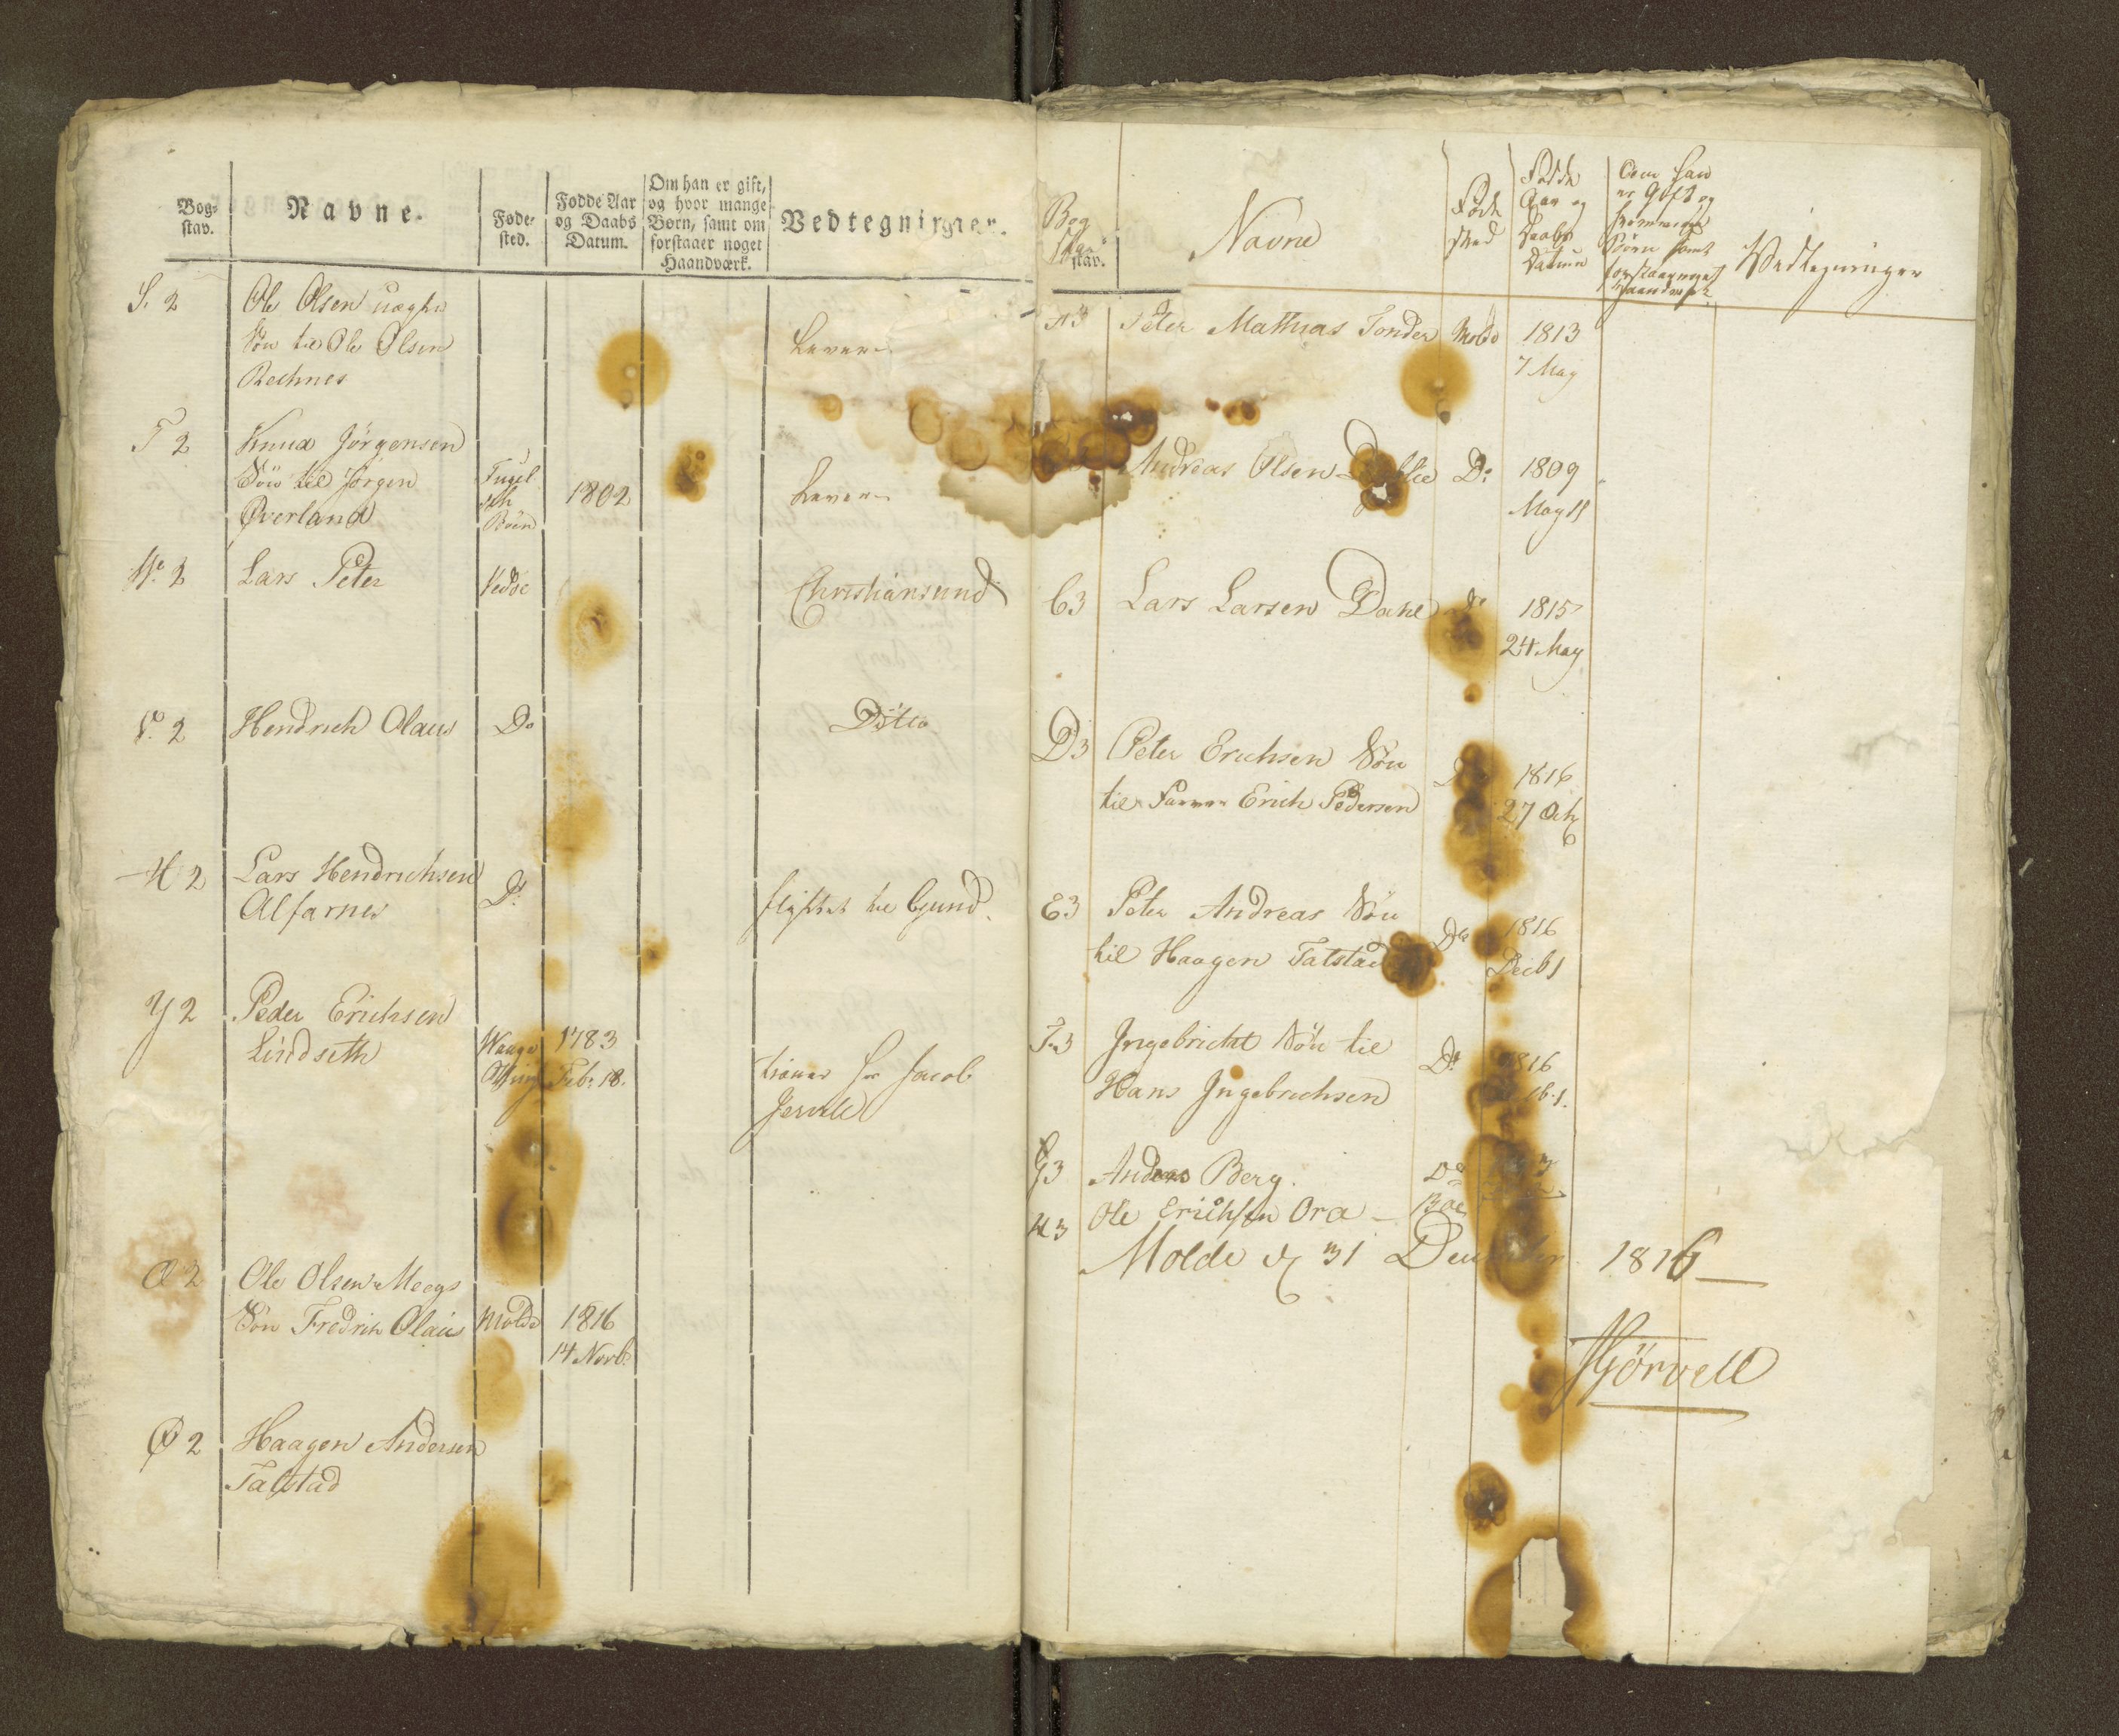 Bog-
stav.
Navne.
Føde-
sted.
Fødde Aar
og Daabs
Datum.
Om han er gift,
og hvor mange
Børn, samt om
forstaaer noget
Haandværk.
Vedtegninger.
S. 2 Ole Olsen uægte
Søn til Ole Olsen
Rechnes
Lever
T 2 Knud Jørgensen
Søn til Jørgen
Øverland
1802
Lever
2 Lars Peter
Vedøe
Christiansund
V. 2 Hendrich Olaus Do
Ditto
2 Lars Hendrichsen
Alfarnes
Do
flyttet til Csund.
Y 2 Peder Erichsen
Lindseth
1783
Feb: 18.
tiener Jacob
Æ 2 Ole Olsen Moegs
Søn Fredrik Olaus Molde 1816
14 Novb:
Ø 2 Haagen Andersen
Talstad
Bog
stav.
Navne
Føde
sted
Fødde
Aar og
Daabs
Datum
Om han
er Gift og
Børn samt
Vedtegninger
A3 Peter Mathias Tonder Molde 1813
7 May
Andreas Olsen Do 1809
May 11
C3 Lars Larsen Dahl Do 1815
24 May
D3 Peter Erichsen Søn
til Erich Pedersen
1816
27 Oct
E3 Peter Andreas Søn
til Haagen Talstad
Do 1816
Decb 1
F3 Ingebricht Søn til
Hans Ingebrichsen
Do 1816
G3 Anders Berg. Do
H3 Ole Erichsen Ora
Molde d 31 December 1816